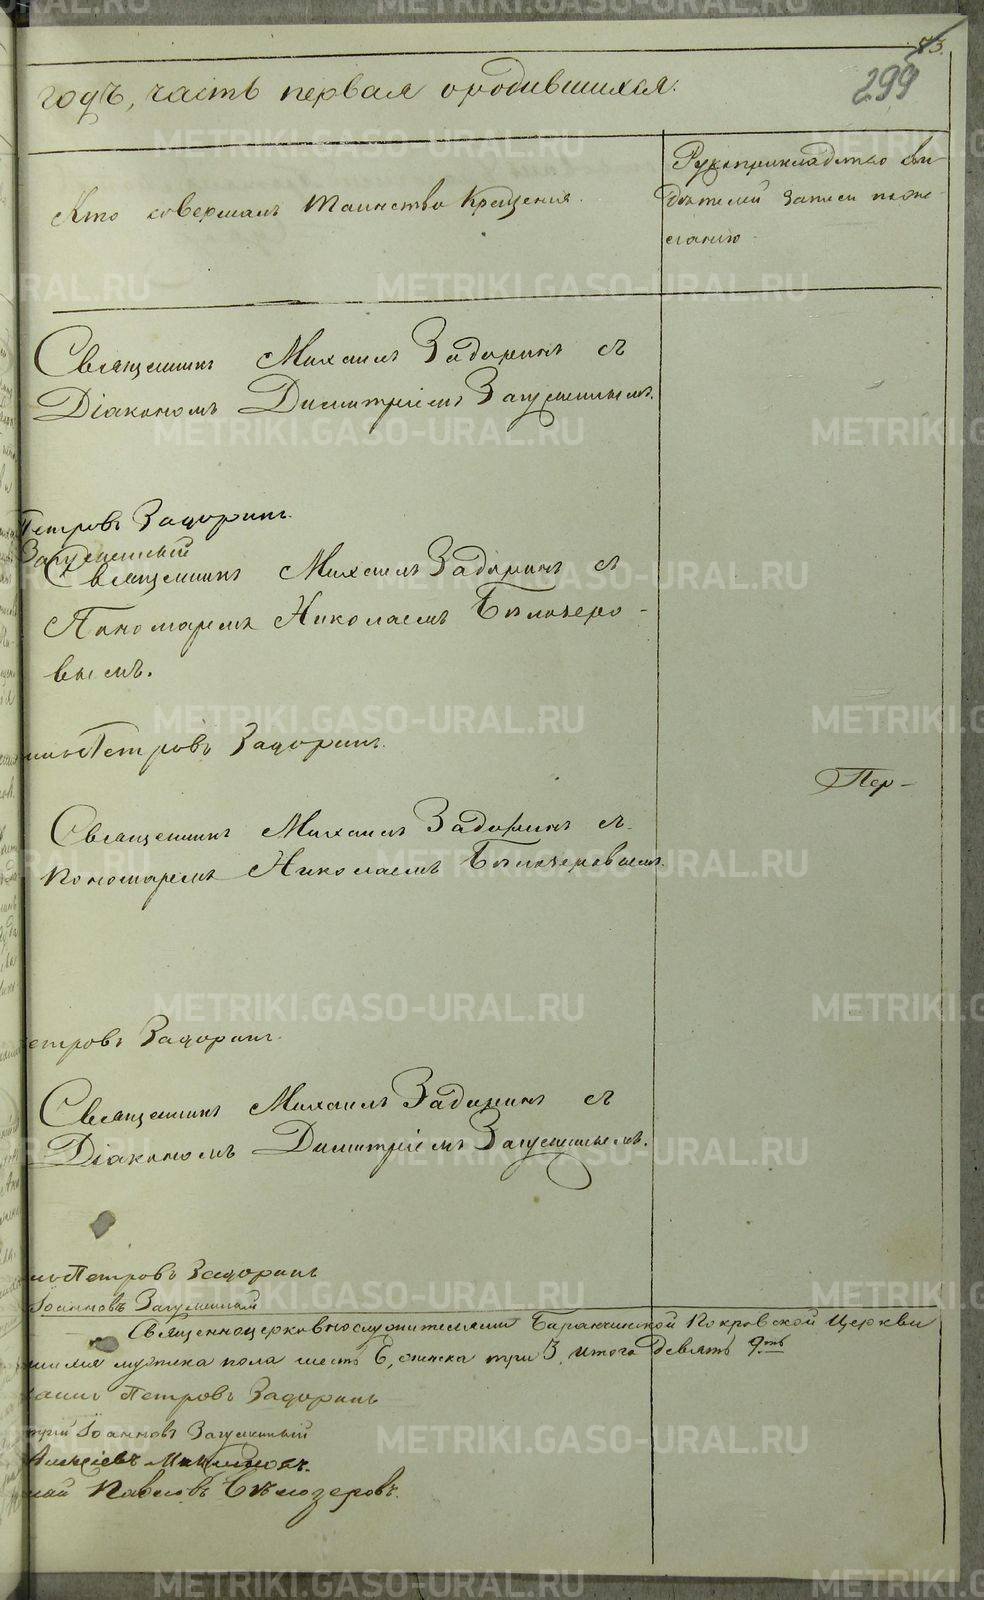 73.
299
годъ, часть первая ородившихся.
Кто совершалъ таинство крещенія.
Рукоприкладство сви-
дѣтелей записи пожа-
ланію
Священникъ Михаилъ Задоринъ съ
Діакономъ Димитріемъ Загуменнымъ.
Петровъ Задоринъ.
Загуменный
Священникъ Михаилъ Задоринъ съ
Пономаремъ Николаемъ Бѣлозеро-
вымъ.
Петровъ Задоринъ.
Пер-
Священникъ Михаилъ Задоринъ съ
пономаремъ Николаемъ Бѣлозеровымъ.
етровъ Задоринъ.
Священникъ Михаилъ Задоринъ съ
Діакономъ Димитріемъ Загуменнымъ.
Петровъ Задоринъ
Іоанновъ Загуменный
Священноцерковнослужителями Баранчинской Покровской Церкви
мужеска пола шесть 6, женска три 3, итого Девять 9ть
Петровъ Задоринъ
Іоанновъ Загуменный
Алексіевъ
Павловъ Бѣлозеровъ.
METRIKI.GASO-URAL.RU